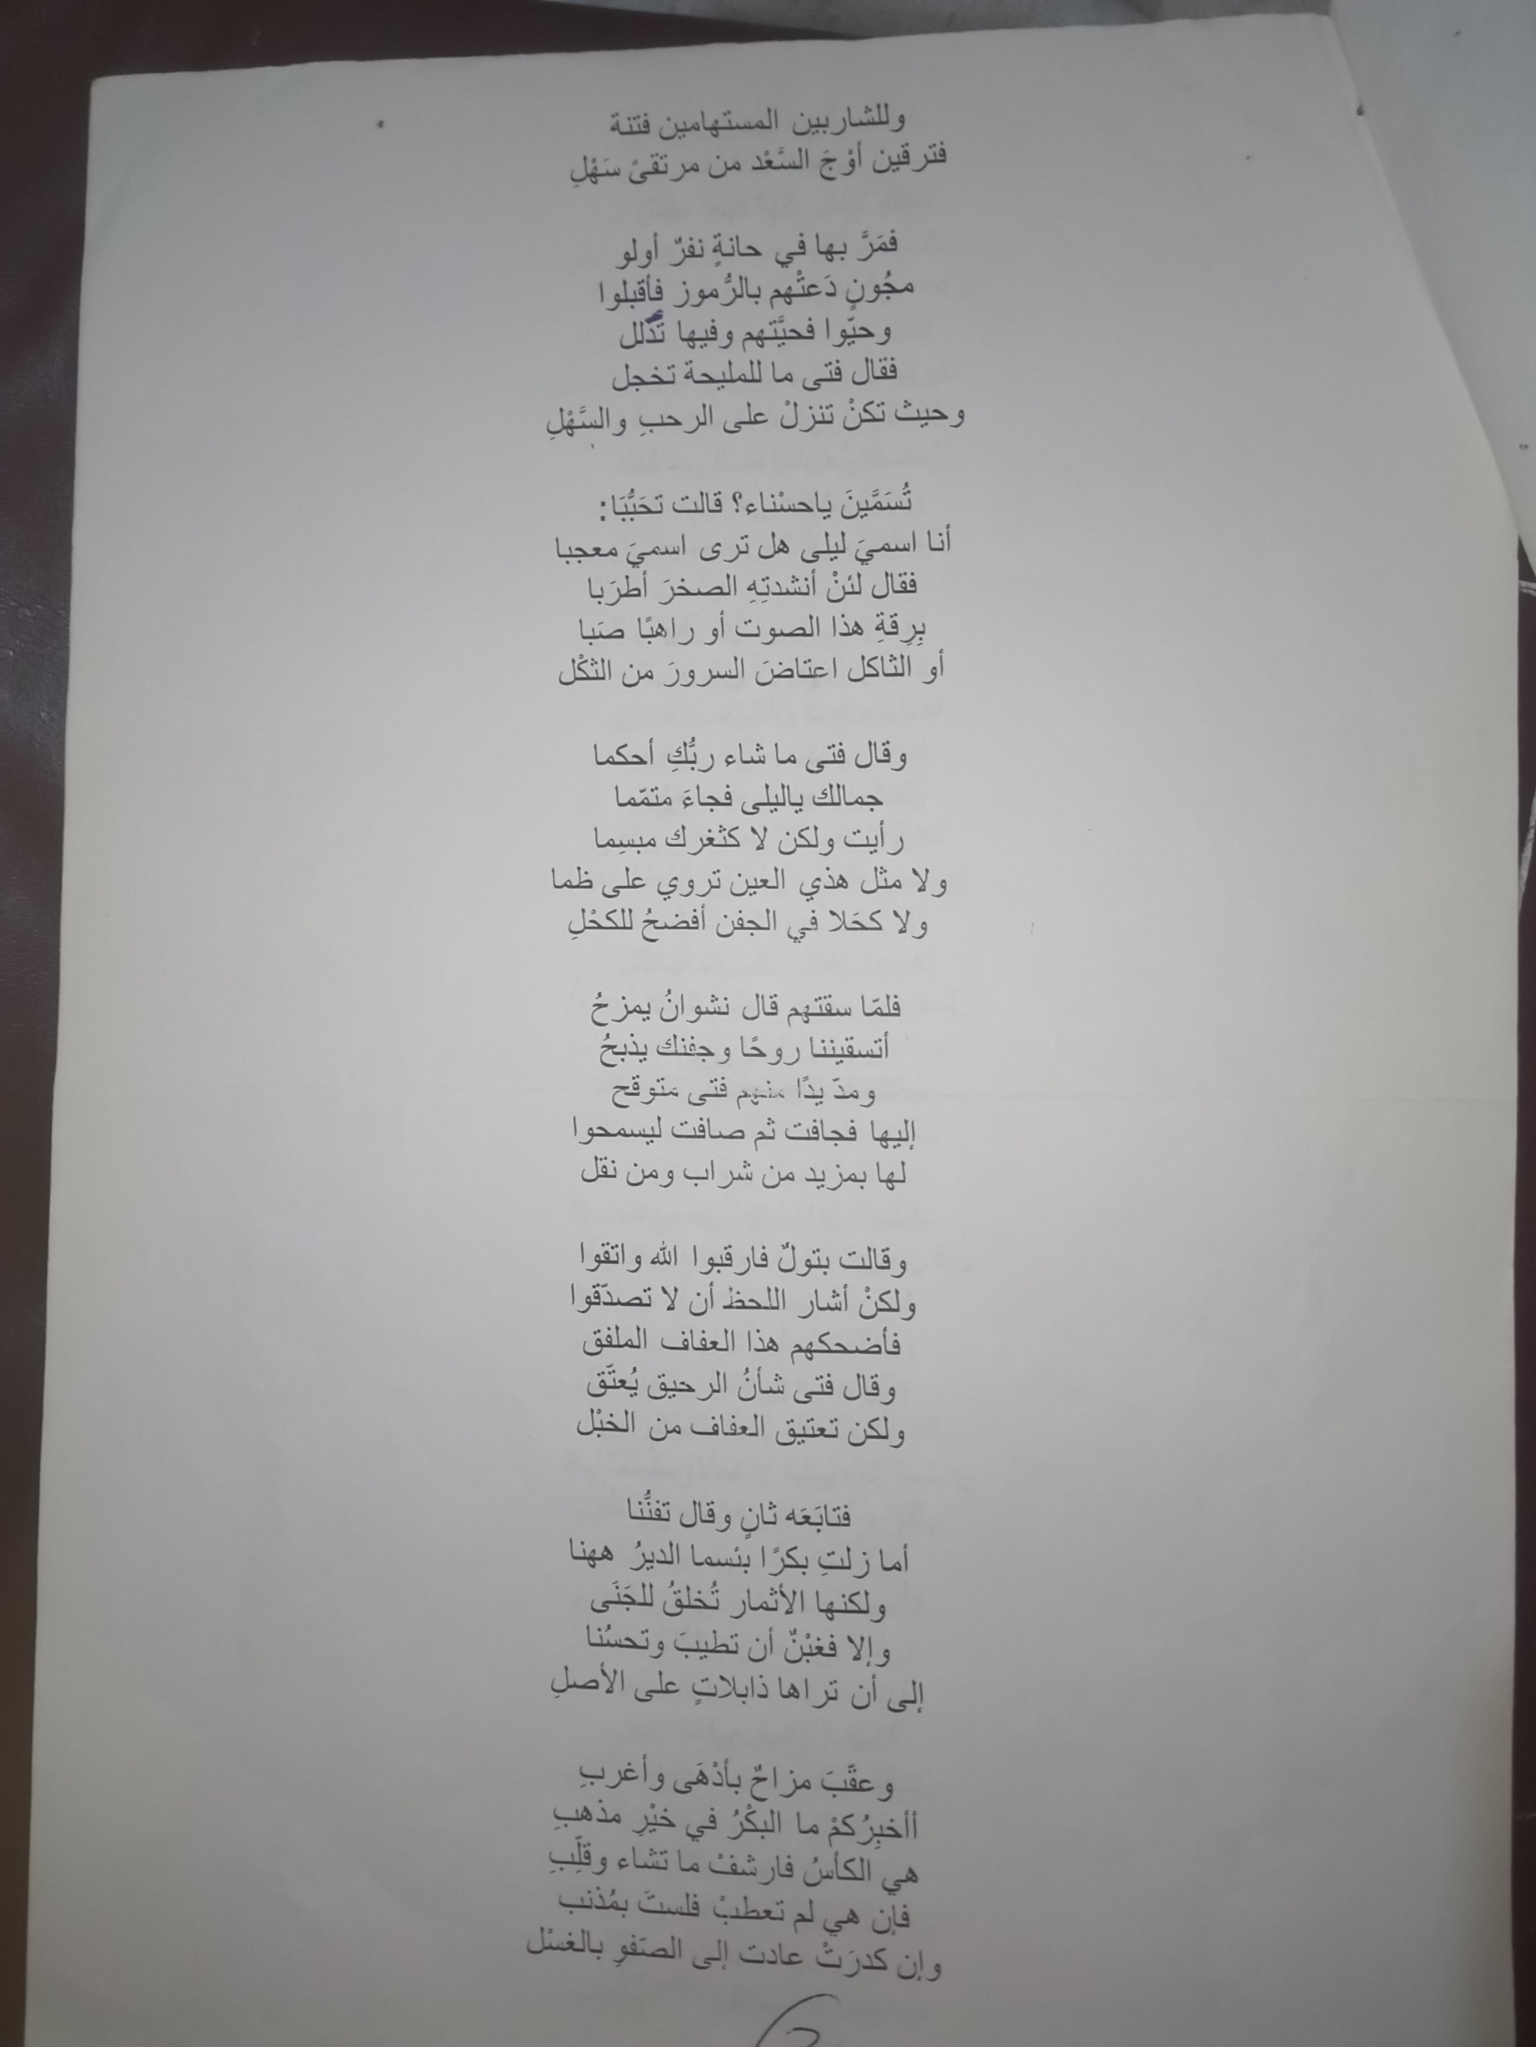 وللشاربين المستهامين فتنة
فترقين أوْجَ السَّعْد من مرتقىً سَهْلِ
فمَرَّ بها في حانةٍ نفرٌ أولو
مجُونٍ دَعتْهم بالرُّموز فأقبلوا
وحيّوا فحيَّتهم وفيها تدلل
فقال فتى ما للمليحة تخجل
وحيث تكنْ تنزلْ على الرحبِ والسَّهْلِ
تُسَمَّينَ ياحسْناء؟ قالت تحَبُّبَا:
أنا اسميَ ليلى هل ترى اسميَ معجبا
فقال لئنْ أنشدتِهِ الصخرَ أطرَبا
بِرِقةِ هذا الصوت أو راهبًا صَبا
أو الثاكل اعتاضَ السرورَ من الثكْل
وقال فتى ما شاء ربُّكِ أحكما
جمالك ياليلى فجاءَ متمّما
رأيت ولكن لا كثغرك مبسِما
ولا مثل هذي العين تروي على ظما
ولا كحَلا في الجفن أفضحُ للكحْلِ
فلمّا سقتهم قال نشوانُ يمزحُ
أتسقيننا روحًا وجفنك يذبحُ
ومدّ يدًا منهم فتى متوقح
إليها فجافت ثم صافت ليسمحوا
لها بمزيد من شراب ومن نقل
وقالت بتولٌ فارقبوا الله واتقوا
ولكنْ أشار اللحظ أن لا تصدّقوا
فأضحكهم هذا العفاف الملفق
وقال فتى شأنُ الرحيق يُعتَّق
ولكن تعتيق العفاف من الخبْل
فتابَعَه ثانٍ وقال تفنُّنا
أما زلتِ بكرًا بئسما الديرُ ههنا
ولكنها الأثمار تُخلقُ للجَنَى
وإلا فغبْنٌ أن تطيبَ وتحسُنا
إلى أن تراها ذابلاتٍ على الأصلِ
وعقَّبَ مزاحٌ بأدْهَى وأغربِ
أأخبِرُكمْ ما البكْرُ في خيْرِ مذهبِ
هي الكأسُ فارشفْ ما تشاء وقلِّبِ
فإن هي لم تعطبْ فلستَ بمُذنب
وإن كدرَتْ عادت إلى الصَفوِ بالغسْل